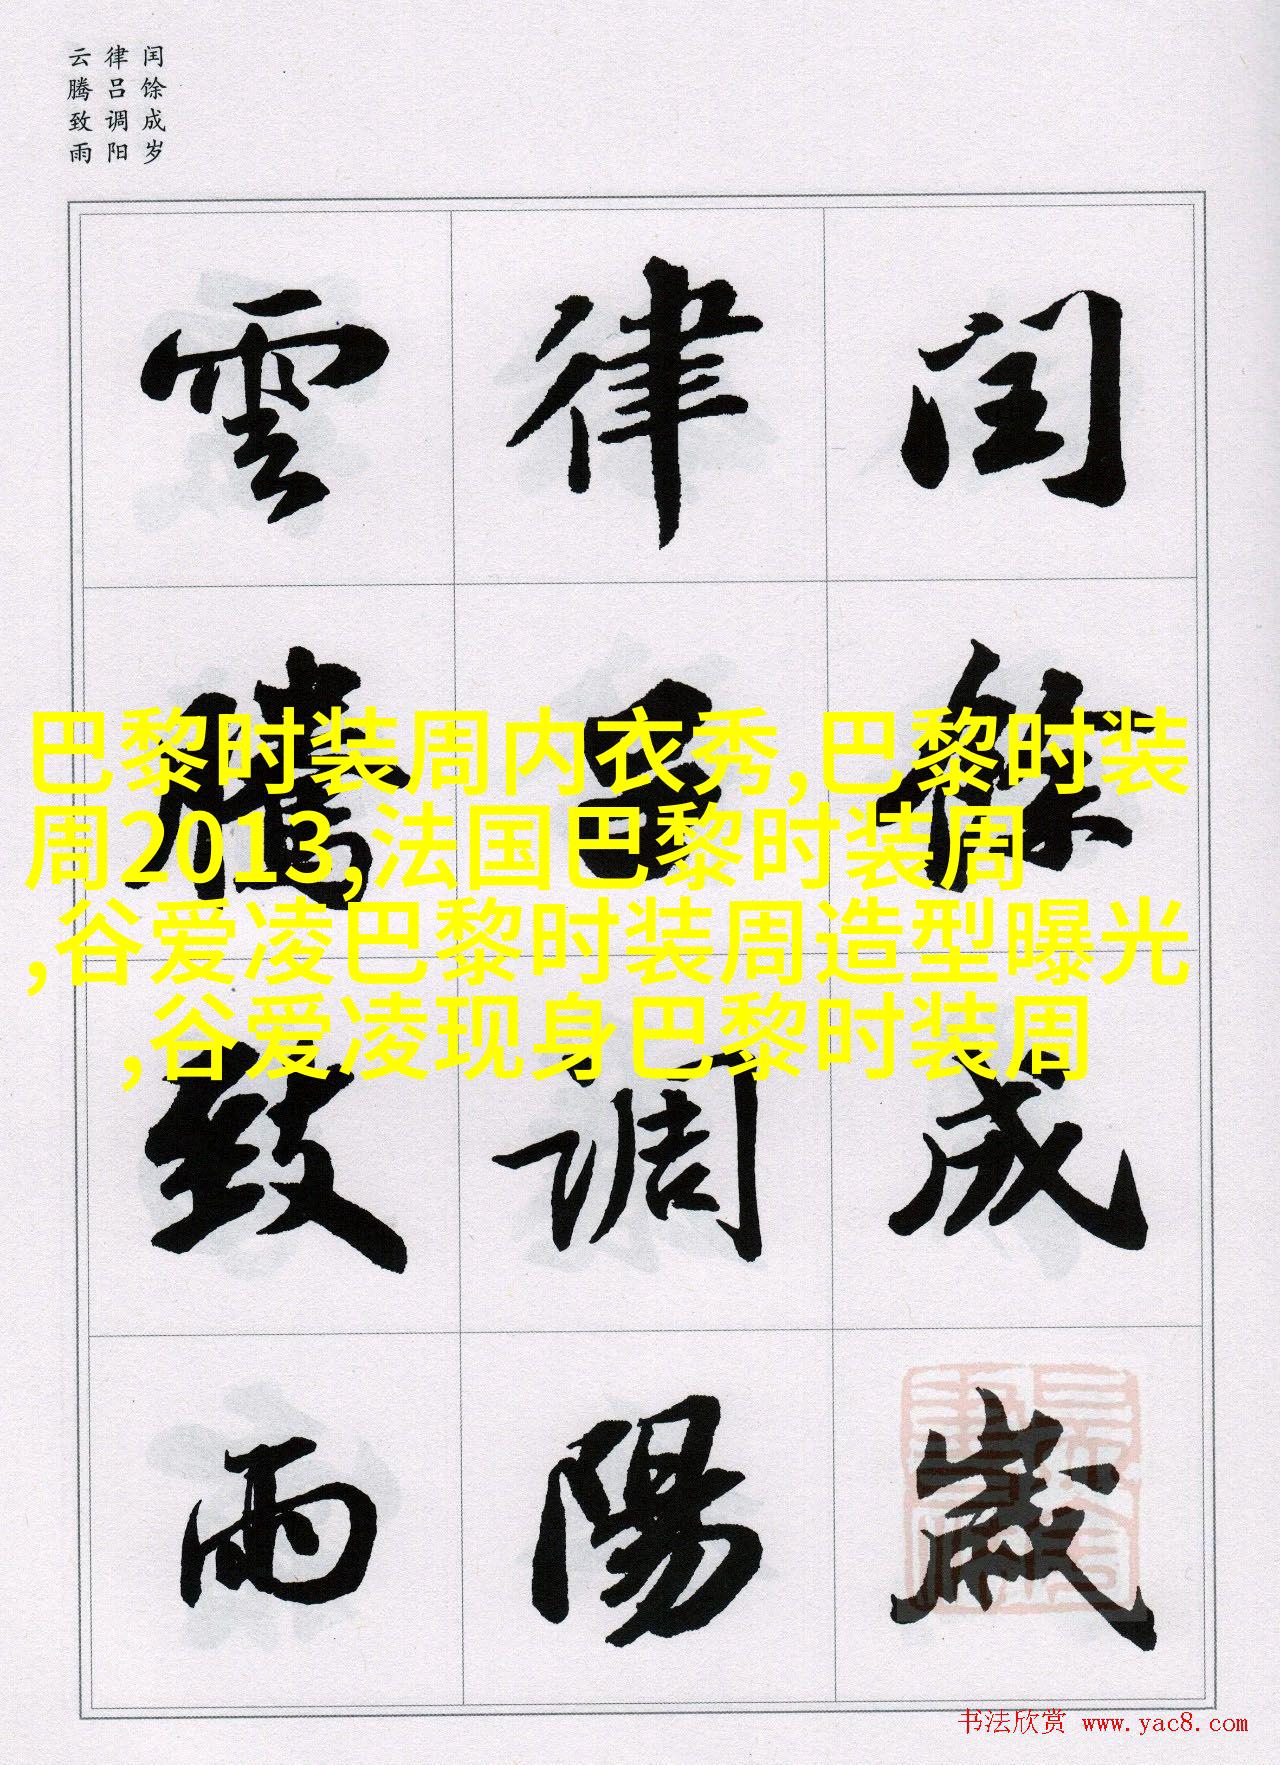 闰馀成岁
律吕调阳
云腾致雨
闰馀成歲
律吕調陽
雲騰致雨
巴黎时装周内衣秀,巴黎时装
周2013,法国巴黎时装周
,谷爱凌巴黎时装周造型曝光
,谷爱凌现身巴黎时装周
书法欣赏 www.yac8.com